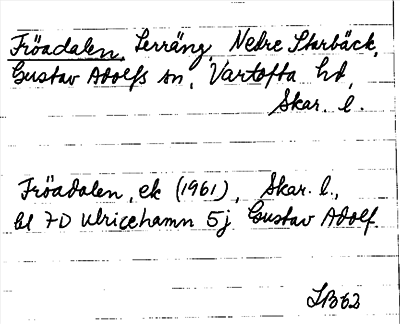 Fröadalen, Terräng, Nedre Starbäck,
Gustav Adolfs sn, Vartofta hd,
Skar. l.
Fröadalen, ek (1961), Skar. l.,
bl 7D Ulricehamn 5j Gustav Adolf